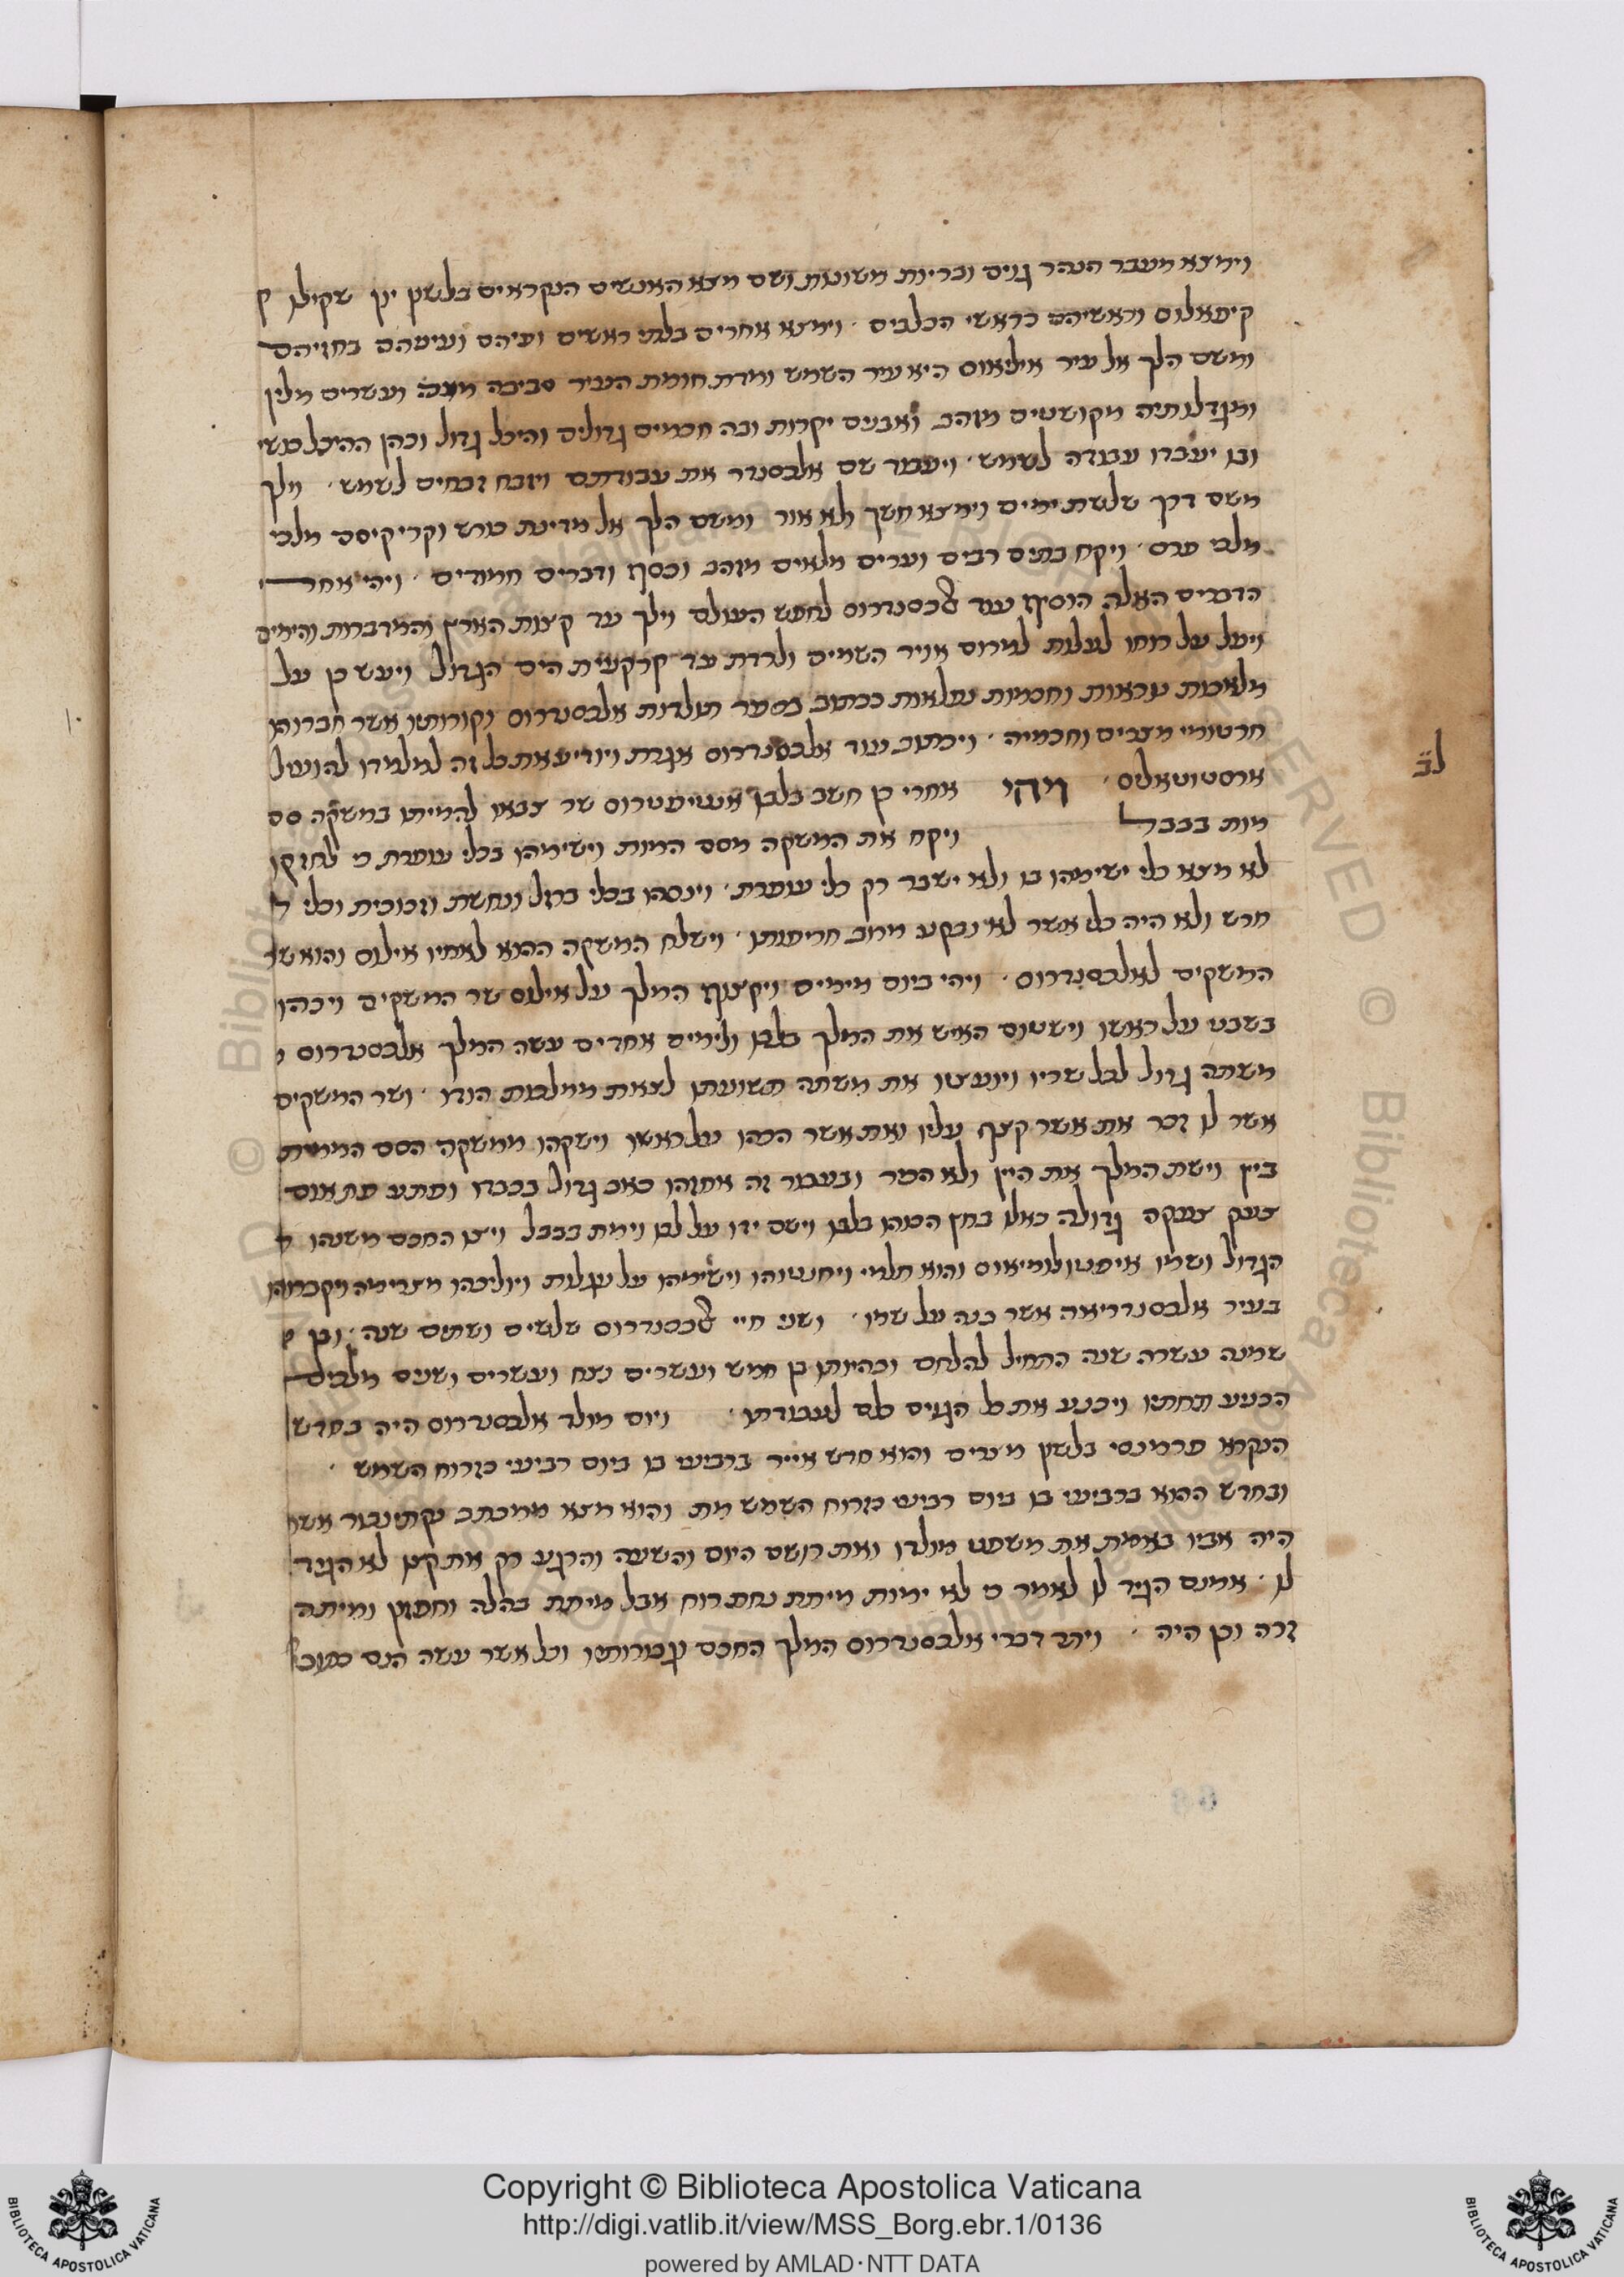 וימצא מעבר הנהר גוים ובריות משונות ושם מצא האנשים הנקראים בלשון יון שקילו ק
קיפאלוס וראשיהם כראשי הכלבים ׳ וימצא אחרים בלתי ראשים ופיהם ועיניהם בחזיהם
ומשם הלך אל עיר איליאוס היא עיר השמש ומדת חומת העיר סביבה מאה ועשרים מלין
ומגדלותיה מקושטים מזהב ואבנים יקרות ובה חכמים גדולים והיכל גדול וכהן ההיכל כושי
ובו יעבדו עבודה לשמש ׳ ויעבד שם אלכסנדר את עבודתם ויזבח זבחים לשמש ׳ וילך
משם דרך שלשת ימים וימצא חשך ולא אור ומשם הלך אל מדינת כורש וקריקיסס מלכי
מלכי פרס ׳ ויקח בתים רבים וערים מלאים מזהב וכסף ודברים חמודים ׳ ויהי אחרי
הדברים האלה הוסיף עוד אלכסנדרוס לחפש העולם וילך עד קצות הארץ והמדברות והימים
ויעל על רוחו לעלות למרום אויר השמים ולרדת עד קרקעית הים הגדול ויעש כן על
מלאכות נוראות וחכמות נפלאות ככתוב בספר תולדות אלכסנדרוס וקורותיו אשר חברוהו
חרטומי מצרים וחכמיה ׳ ויכתוב עוד אלכסנדרוס אגרת ויודיע את כל זה למלמדו
ארסטוטאליס ׳ ויהי אחרי כן חשב בלבו אנטיפטרוס שר צבאו להמיתו במשקה סם
מות בבבל ויקח את המשקה מסם המות וישימהו בכלי עופרת כי לחזקו
לא מצא כלי ישימהו בו ולא ישבר רק כלי עופרת ׳ וינסהו בכלי ברזל ונחשת וזכוכית וכלי
חרש ולא היה כלי אשר לא נבקע מרוב חריפותו ׳ וישלח המשקה ההוא לאחיו איולוס והוא שר
המשקים לאלכסנדרוס ׳ ויהי ביום מימים ויקצוף המלך על איולוס שר המשקים ויכהו
בשבט על ראשו וישטום האיש את המלך בלבו ולימים אחדים עשה המלך אלכסנדרוס
משתה גדול לכל שריו ויועציו את משתה תשועתו לצאת ממלכות הודו ׳ ושר המשקים
אשר לו זכר את אשר קצף עליו ואת אשר הכהו על ראשו וישקהו ממשקה הסם הממית
ביין וישת המלך את היין ולא המר ובעבור זה אחזהו כאב גדול בכבדו ופתע פתאום
צעק צעקה גדולה כאלו בחץ הכוהו בלבו וישם ידו על לבו וימת בבבל ויצו החכם משנהו
הגדול ושמו איפטולומיאוס והוא תלמי ויחנטוהו וישימהו על עגלות ויוליכהו מצרימה ויקברוהו
בעיר אלכסנדריאה אשר בנה על שמו ׳ ושני חיי אלכסנדרוס שלשים ושתים שנה ׳ ובן
שמנה עשרה שנה התחיל להלחם ובהיותו בן חמש ועשרים נצח ועשרים ושנים מלכים
הכניע תחתיו ויכבש את כל הגוים כלם לעבודתו ׳ ויום מולד אלכסנדרוס היה בחדש
הנקרא פרמנסי בלשון מצרים והוא חדש אייר ברביעי בו ביום רביעי כזרוח השמש ׳
ובחדש ההוא ברביעי בו ביום רביעי כזרוח השמש מת והוא מצא ממכתב נקתינבור אשר
היה אביו באמת את משפט מולדו ואת רושם היום והשעה והרגע רק את קיצו לא הגיד
לו ׳ אמנם הגיד לו לאמר כי לא ימות מיתת נחת רוח אבל מיתת בהלה וחפזון ומיתה
זרה וכן היה ׳ ויתר דברי אלכסנדרוס המלך החכם וגבורותיו וכל אשר עשה הנם
לב
Copyright © Biblioteca Apostolica Vaticana
http://digi.vatlib.it/view/MSS_Borg.ebr.1/0136
powered by AMLAD·NTT DATA
BIBLIOTECA APOSTOLICA VATICANA
BIBLIOTECA APOSTOLICA VATICANA